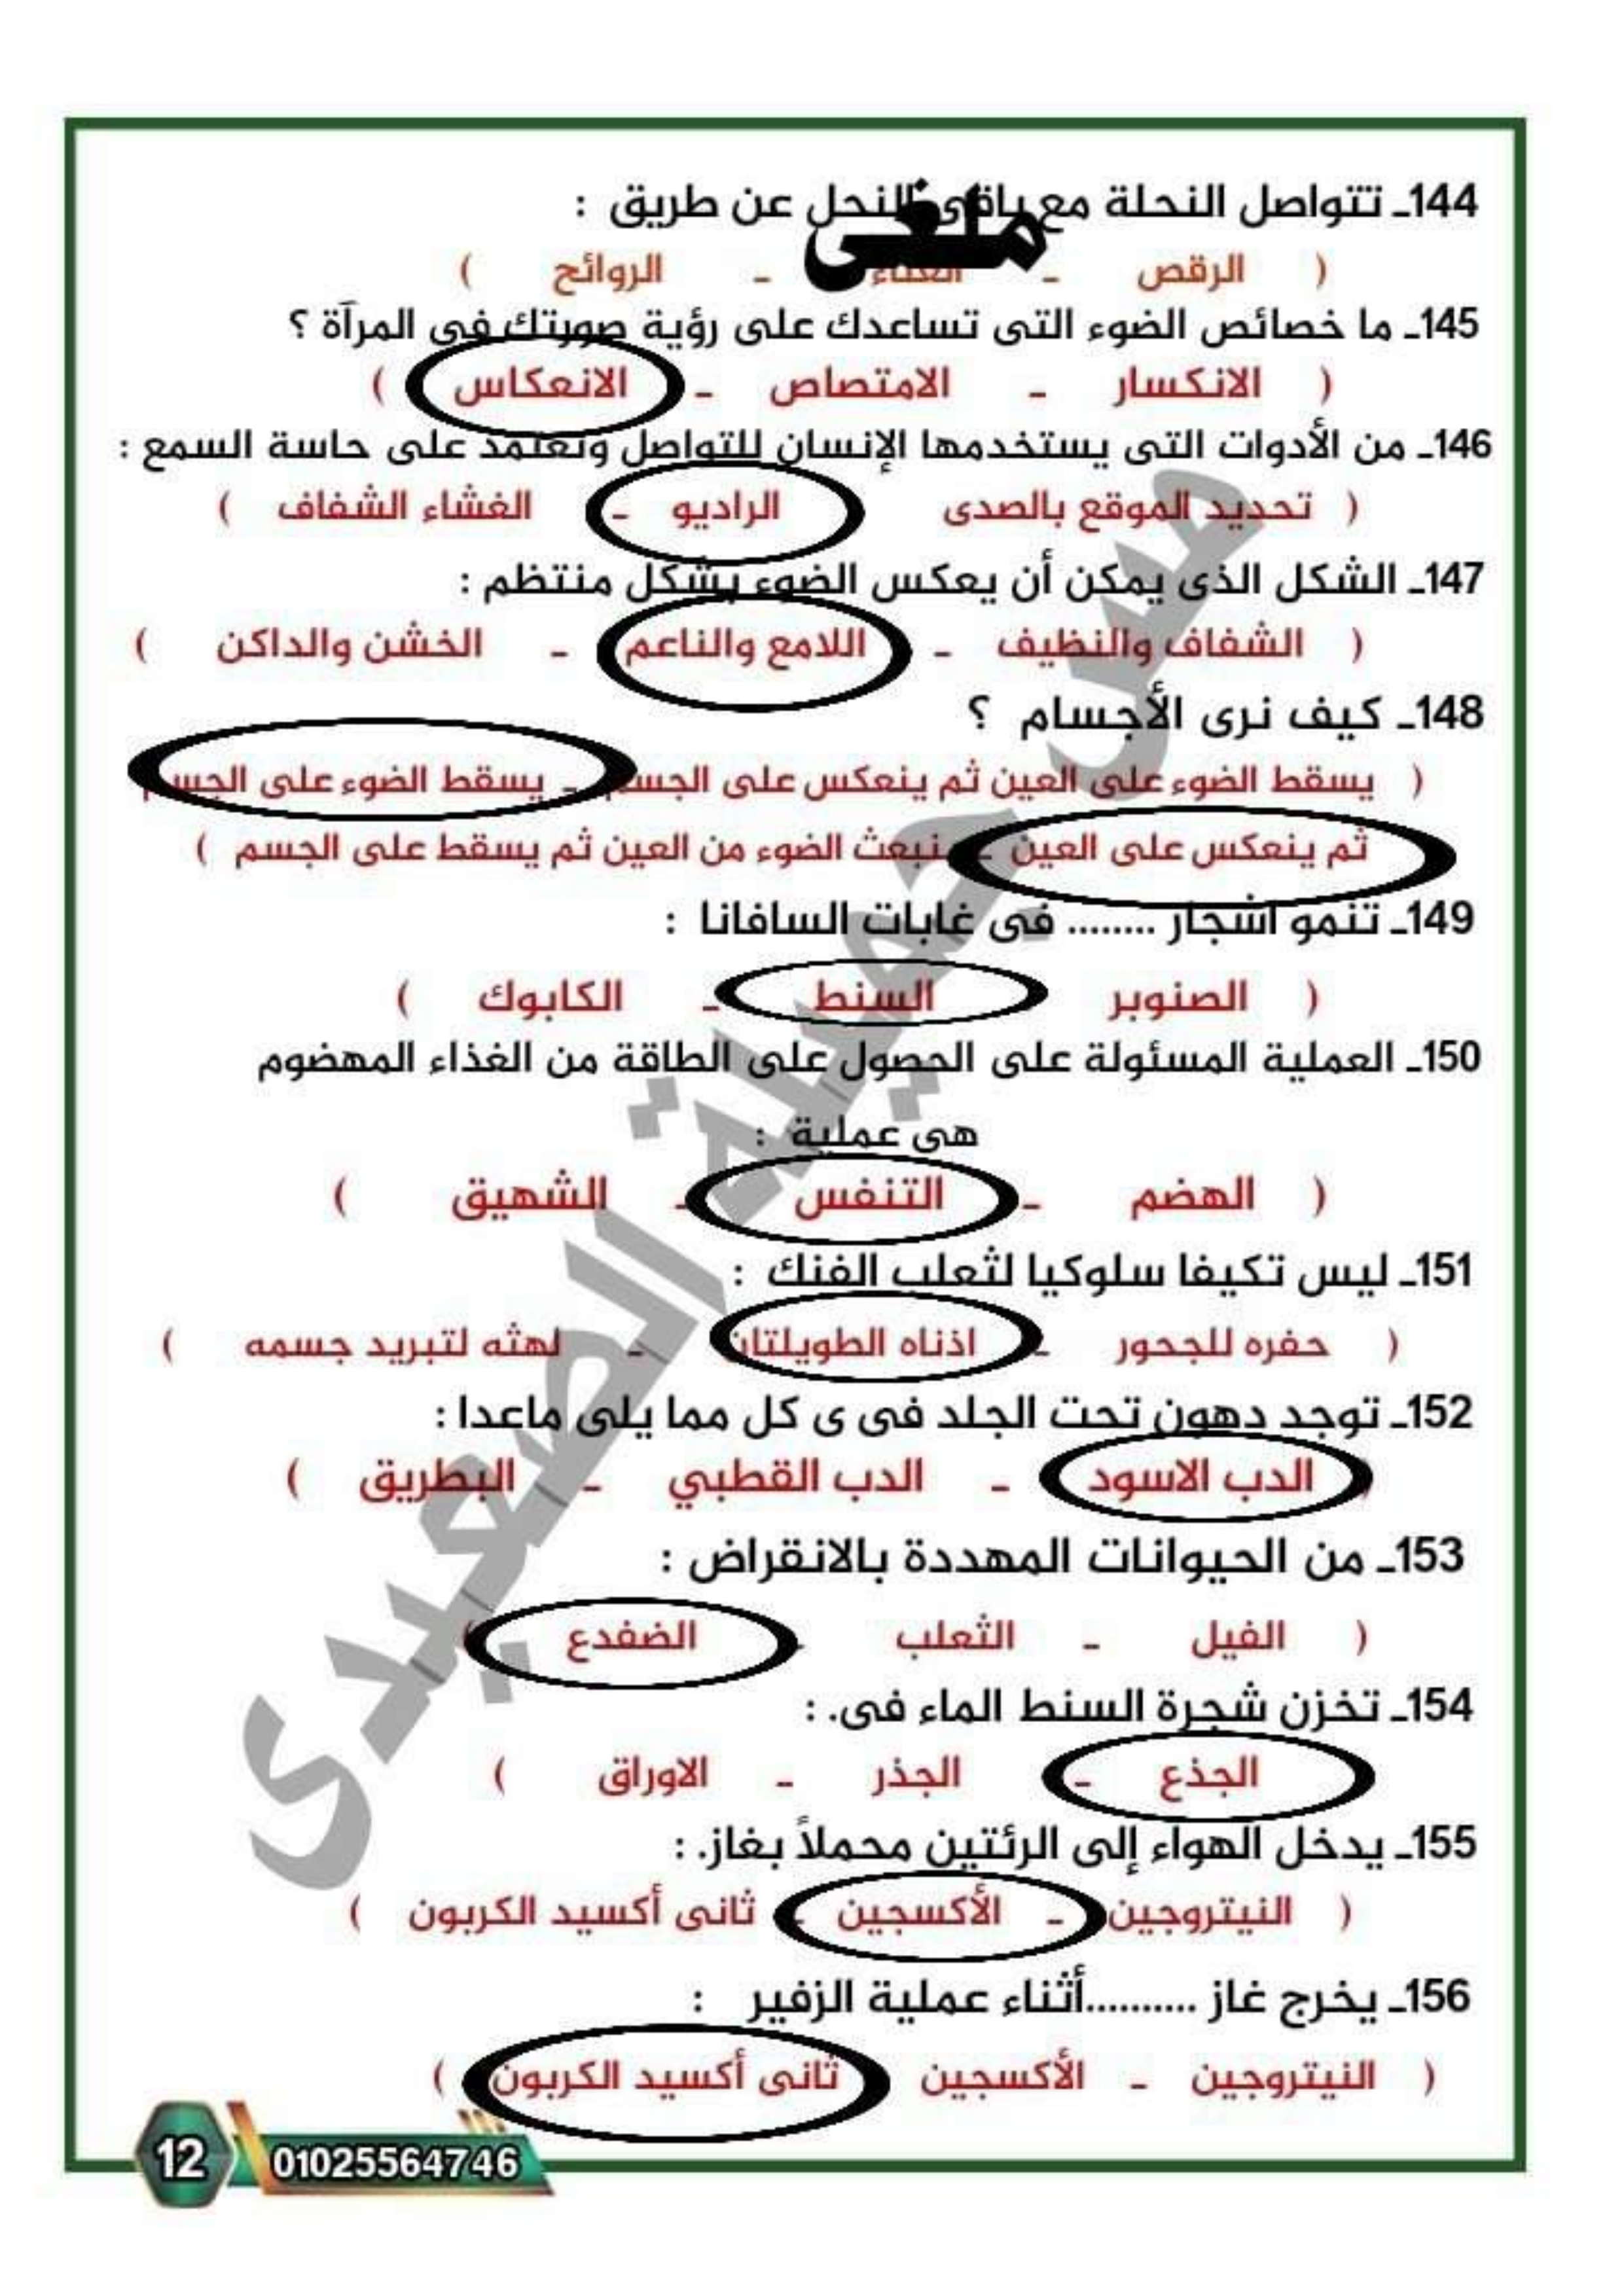 144ـ تتواصل النحلة مع باقى النحل عن طريق :
ملغى
( الرقص ـ الغناء ـ الروائح )
145ـ ما خصائص الضوء التى تساعدك على رؤية صورتك فى المرآة ؟
( الانكسار ـ الامتصاص ـ الانعكاس )
146ـ من الأدوات التى يستخدمها الإنسان للتواصل وتعتمد على حاسة السمع :
( تحديد الموقع بالصدى الراديو ـ الغشاء الشفاف )
147ـ الشكل الذى يمكن أن يعكس الضوء بشكل منتظم :
( الشفاف والنظيف ـ اللامع والناعم ـ الخشن والداكن )
148ـ كيف نرى الأجسام ؟
( يسقط الضوء على العين ثم ينعكس على الجسم ـ يسقط الضوء على الجسم
ثم ينعكس على العين ـ ينبعث الضوء من العين ثم يسقط على الجسم )
149ـ تنمو أشجار ........ فى غابات السافانا :
( الصنوبر السنط ـ الكابوك )
150ـ العملية المسئولة على الحصول على الطاقة من الغذاء المهضوم
هى عملية :
( الهضم ـ التنفس ـ الشهيق )
151ـ ليس تكيفا سلوكيا لثعلب الفنك :
( حفره للجحور ـ اذناه الطويلتان ـ لهثه لتبريد جسمه )
152ـ توجد دهون تحت الجلد فى ى كل مما يلى ماعدا :
( الدب الاسود ـ الدب القطبي ـ البطريق )
153ـ من الحيوانات المهددة بالانقراض :
( الفيل ـ الثعلب ـ الضفدع )
154ـ تخزن شجرة السنط الماء فى. :
( الجذع ـ الجذر ـ الاوراق )
155ـ يدخل الهواء إلى الرئتين محملاً بغاز. :
( النيتروجين ـ الأكسجين ـ ثانى أكسيد الكربون )
156ـ يخرج غاز ..........أثناء عملية الزفير :
( النيتروجين ـ الأكسجين ثانى أكسيد الكربون )
12 01025564746
مس جميلة الصعيدى